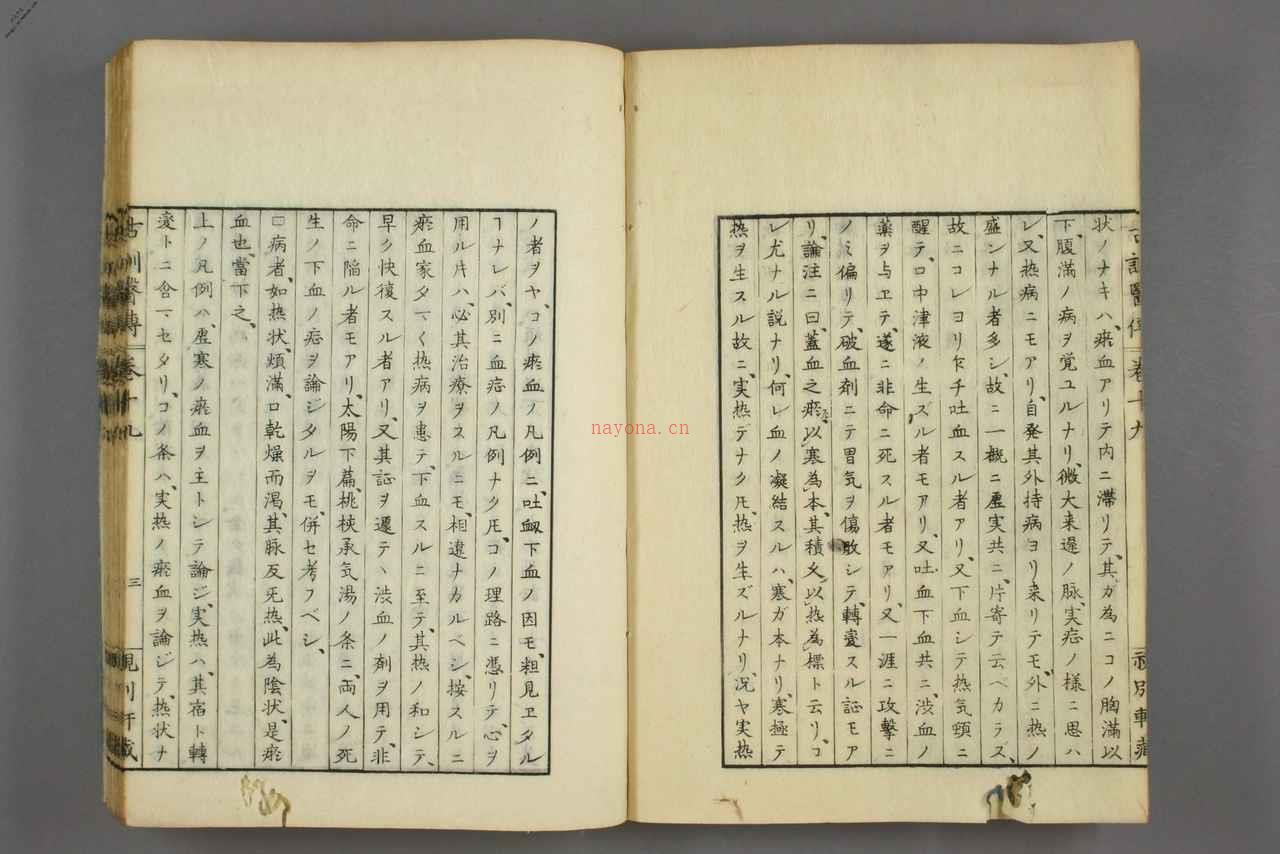 古訓醫傳 卷十九
状ノナキハ、瘀血アリテ内ニ滯リテ、其ガ為ニコノ胸滿以
下、腹滿ノ病ヲ覚ユルナリ、微大来遅ノ脉、実症ノ様ニ思ハ
レ、又热病ニモアリ、自発其外持病ヨリ来リテモ、外ニ热ノ
盛ンナル者多シ、故ニ一概ニ虛実共ニ、片寄テ云ベカラズ、
故ニコレヨリ乍チ吐血スル者アリ、又下血シテ热気頸ニ
醒テ、口中津液ノ生ズル者モアリ、又吐血下血共ニ、渋血ノ
薬ヲ与ヱテ、遂ニ非命ニ死スル者モアリ、又一涯ニ攻擊ニ
ノミ偏リテ、破血剤ニテ胃気ヲ傷敗シテ、轉変スル証モア
リ、論注ニ曰、蓋血之瘀、以寒為本、其積久、以热為標ト云リ、コ
レ尤ナル説ナリ、何レ血ノ凝結スルハ、寒ガ本ナリ、寒極テ
热ヲ生スル故ニ、実热デナクトモ、热ヲ生ズルナリ、况ヤ実热
ノ者ヲヤ、コノ瘀血ノ凡例ニ、吐衂下血ノ因モ、粗見ヱタル
ヿナレバ、別ニ血症ノ凡例ナクトモ、コノ理路ニ憑リテ、心ヲ
用ル片ハ、必其治療ヲスルニモ、相違ナカルベシ、按スルニ
瘀血家タマく热病ヲ患テ、下血スルニ至テ、其热ノ和シテ、
早ク快復スル者アリ、又其証ヲ遷テハ渋血ノ剤ヲ用テ、非
命ニ陥ル者モアリ、太陽下篇、桃核承気湯ノ条ニ、両人ノ死
生ノ下血ノ症ヲ論ジタルヲモ、併セ考フベシ、
病者、如热状、煩滿、口乾燥而渴、其脉反无热、此為陰状、是瘀
血也、當下之、
上ノ凡例ハ、虛寒ノ瘀血ヲ主トシテ論ジ、実热ハ、其宿ト轉
変トニ含マセタリ、コノ条ハ、実热ノ瘀血ヲ論ジテ、热状ナ
古訓醫傳 卷十九 三
nayona.cn